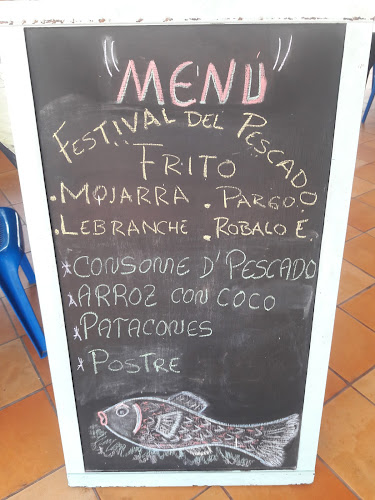 "MENÚ"
FESTIVAL DEL PESCADO
FRITO
.MOJARRA .PARGO.
.LEBRANCHE .ROBALO E.
*CONSOME D' PESCADO
*ARROZ CON COCO
*PATACONES
*POSTRE